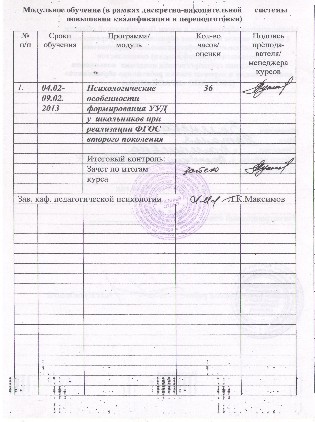 Модульное обучение (в рамках дискретно-накопительной системы
повышения квалификации и переподготовки)
№ п/п
Сроки обучения
Программа/ модуль
Кол-во часов/ оценки
Подпись преподавателя/ менеджера курсов
1. 04.02- Психологические 36
09.02. особенности
2013 формирования УУД
у школьников при
реализации ФГОС
второго поколения
Итоговый контроль:
Зачет по итогам зачтено
курса
Зав. каф. педагогической психологии Л.К.Максимов